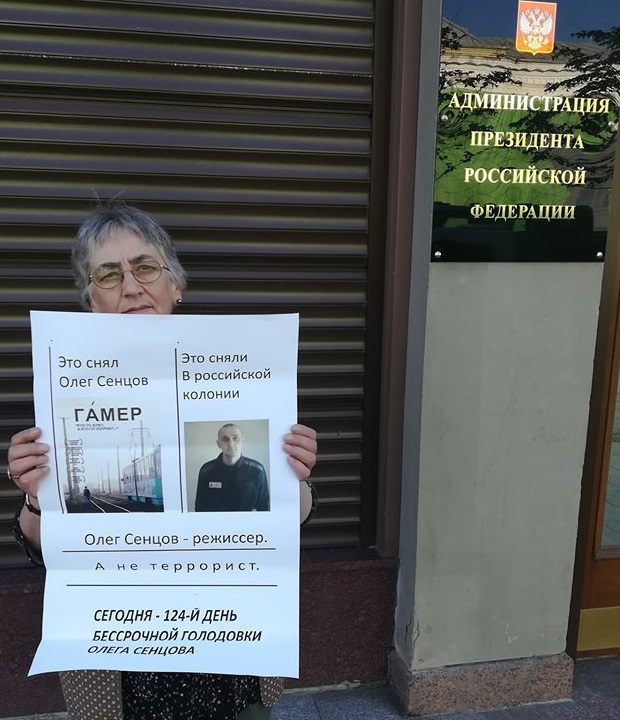 АДМИНИСТРАЦИЯ
ПРЕЗИДЕНТА
РОССИЙСКОЙ
ФЕДЕРАЦИИ
Это снял
Олег Сенцов
ГАМЕР
Это сняли
В российской
колонии
Олег Сенцов - режиссер.
А не террорист.
СЕГОДНЯ - 124-Й ДЕНЬ
БЕССРОЧНОЙ ГОЛОДОВКИ
ОЛЕГА СЕНЦОВА